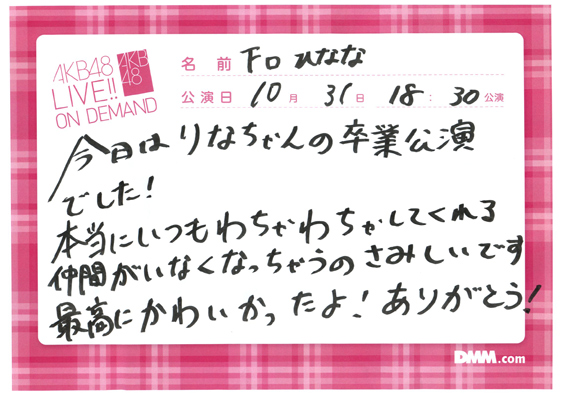 AKB48
LIVE!!
ON DEMAND
AKB
48
名前 下口ひなな
公演日 10月 31日 18:30公演
今日はりなちゃんの卒業公演
でした!
本当にいつもわちゃわちゃしてくれる
仲間がいなくなっちゃうのさみしいです
最高にかわいかったよ!ありがとう!
DMM.com